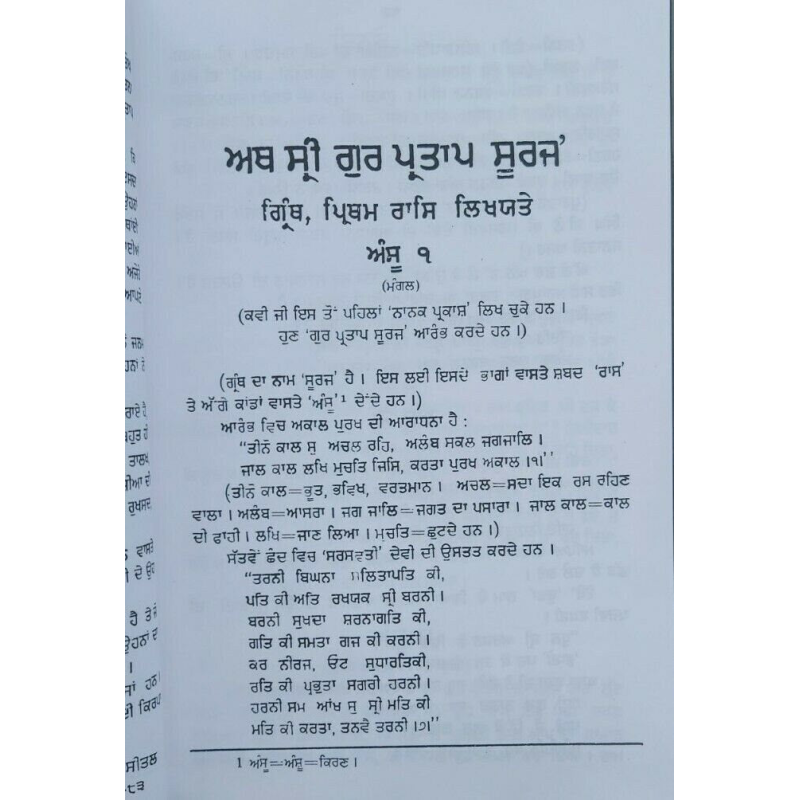 ਅਥ ਸ੍ਰੀ ਗੁਰ ਪ੍ਰਤਾਪ ਸੂਰਜ'
ਗ੍ਰਿੰਥ, ਪ੍ਰਿਥਮ ਰਾਸਿ ਲਿਖਯਤੇ
ਅੰਸੂ ੧
(ਮੰਗਲ)
(ਕਵੀ ਜੀ ਇਸ ਤੋਂ ਪਹਿਲਾਂ 'ਨਾਨਕ ਪ੍ਰਕਾਸ਼' ਲਿਖ ਚੁਕੇ ਹਨ ।
ਹੁਣ 'ਗੁਰ ਪ੍ਰਤਾਪ ਸੂਰਜ' ਆਰੰਭ ਕਰਦੇ ਹਨ ।)
(ਗ੍ਰੰਥ ਦਾ ਨਾਮ 'ਸੂਰਜ' ਹੈ । ਇਸ ਲਈ ਇਸਦੇ ਭਾਗਾਂ ਵਾਸਤੇ ਸ਼ਬਦ 'ਰਾਸ'
ਤੇ ਅੱਗੇ ਕਾਂਡਾਂ ਵਾਸਤੇ 'ਅੰਸੂ'¹ ਦੇਂਦੇ ਹਨ ।)
ਆਰੰਭ ਵਿਚ ਅਕਾਲ ਪੁਰਖ ਦੀ ਆਰਾਧਨਾ ਹੈ :
"ਤੀਨੋ ਕਾਲ ਸੁ ਅਚਲ ਰਹਿ, ਅਲੰਬ ਸਕਲ ਜਗਜਾਲਿ ।
ਜਾਲ ਕਾਲ ਲਖਿ ਮੁਚਤਿ ਜਿਸਿ, ਕਰਤਾ ਪੁਰਖ ਅਕਾਲ ।੧।"
(ਤੀਨੋ ਕਾਲ=ਭੂਤ, ਭਵਿਖ, ਵਰਤਮਾਨ । ਅਚਲ=ਸਦਾ ਇਕ ਰਸ ਰਹਿਣ
ਵਾਲਾ । ਅਲੰਬ=ਆਸਰਾ । ਜਗ ਜਾਲਿ=ਜਗਤ ਦਾ ਪਸਾਰਾ । ਜਾਲ ਕਾਲ=ਕਾਲ
ਦੀ ਫਾਹੀ । ਲਖਿ=ਜਾਣ ਲਿਆ । ਮੁਚਤਿ=ਛੁਟਦੇ ਹਨ ।)
ਸੱਤਵੇਂ ਛੰਦ ਵਿਚ 'ਸਰਸਵਤੀ' ਦੇਵੀ ਦੀ ਉਸਤਤ ਕਰਦੇ ਹਨ ।
"ਤਰਨੀ ਬਿਘਨਾ ਸਲਿਤਾਪਤਿ ਕੀ,
ਪਤਿ ਕੀ ਅਤਿ ਰਖਯਕ ਸ੍ਰੀ ਬਰਨੀ ।
ਬਰਨੀ ਸੁਖਦਾ ਸ਼ਰਨਾਗਤਿ ਕੀ,
ਗਤਿ ਕੀ ਸਮਤਾ ਗਜ ਕੀ ਕਰਨੀ ।
ਕਰ ਨੀਰਜ, ਓਟ ਸੁਧਾਰਤਿਕੀ,
ਰਤਿ ਕੀ ਪ੍ਰਭੁਤਾ ਸਗਰੀ ਹਰਨੀ ।
ਹਰਨੀ ਸਮ ਆਂਖ ਸੁ ਸ੍ਰੀ ਮਤਿ ਕੀ
ਮਤਿ ਕੀ ਕਰਤਾ, ਤਨਵੈ ਤਰਨੀ ।੭।"
1 ਅੰਸੂ=ਅੰਸ਼ੂ=ਕਿਰਣ ।